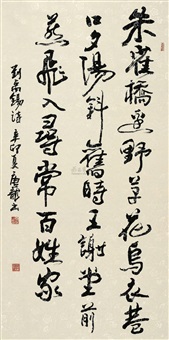 朱雀橋邊野草花烏衣巷
口夕陽斜舊時王謝堂前
燕飛入尋常百姓家
劉禹錫詩 辛卯夏